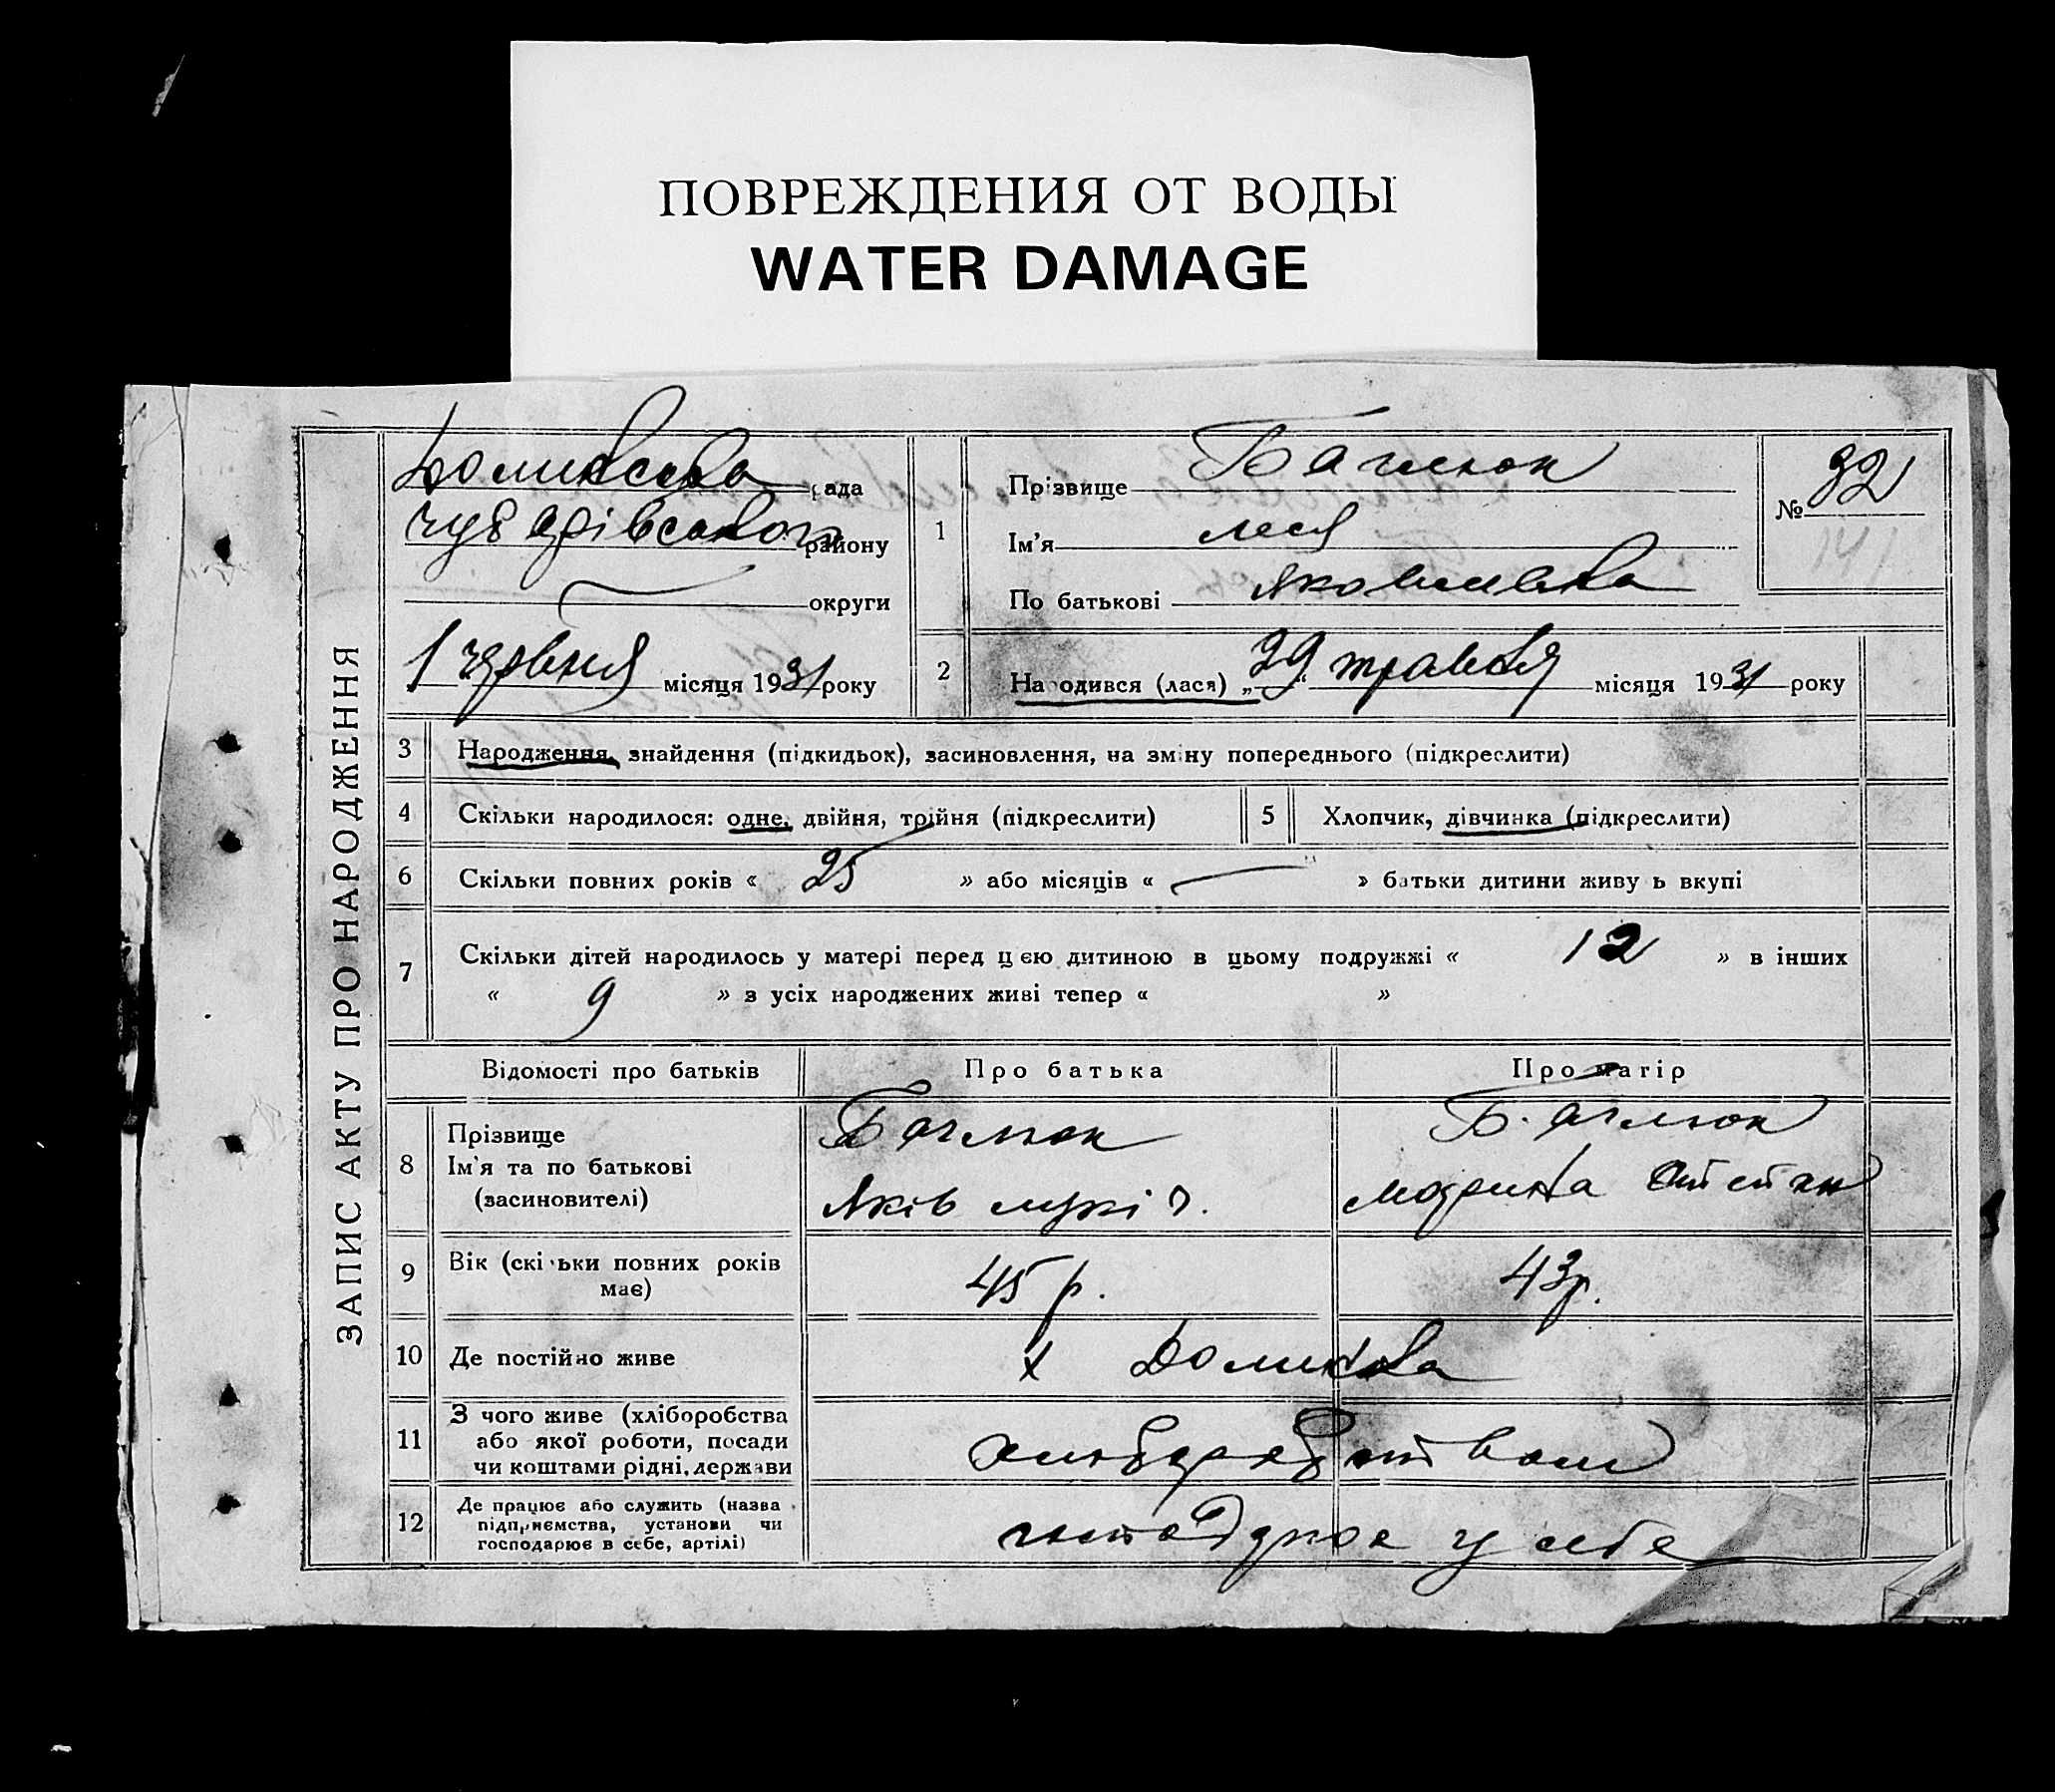 ПОВРЕЖДЕНИЯ ОТ ВОДЫ
WATER DAMAGE
ЗАПИС АКТУ ПРО НАРОДЖЕННЯ
рада
Чубарівського району
округи
1 червня місяця 1931 року
1
Прізвище
Ім'я Леся
По батькові Яковлевна
№ 32
141
2
Народився (лася) „29 травня місяця 1931 року
3 Народження, знайдення (підкидьок), засиновлення, на зміну попереднього (підкреслити)
4 Скільки народилося: одне, двійня, трійня (підкреслити)
5 Хлопчик, дівчинка (підкреслити)
6 Скільки повних років « 25 » або місяців « — » батьки дитини живуть вкупі
7 Скільки дітей народилось у матері перед цією дитиною в цьому подружжі « 12 » в інших
« 9 » з усіх народжених живі тепер « »
Відомості про батьків Про батька Про матір
8 Прізвище
Ім'я та по батькові
(засиновителі)
Яків
9 Вік (скільки повних років
має)
45 р. 43 р.
10 Де постійно живе
х
11 З чого живе (хліборобства
або якої роботи, посади
чи коштами рідні, держави
12 Де працює або служить (назва
підприємства, установи чи
господарює в себе, артілі)
у себе